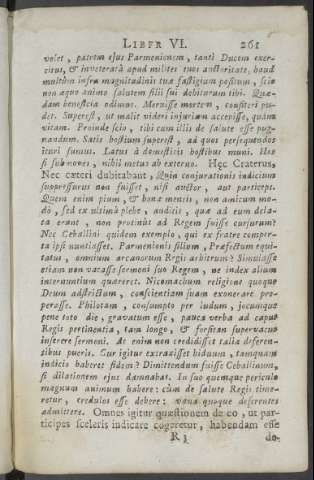 LIBER VI. 261
volet, patrem ejus Parmenionem, tanti Ducem exer-
citus, & inveteratâ apud milites suos auctoritate, haud
multùm infra magnitudinis tuæ fastigium positum, scio
non æquo animo salutem filii sui debiturum tibi. Quæ-
dam beneficia odimus. Meruisse mortem, confiteri pu-
det. Superest, ut malit videri injuriam accepisse, quàm
vitam. Proinde scio, tibi cum illis de salute esse pug-
nandum. Satis hostium superest, ad quos persequendos
ituri sumus. Latus à domesticis hostibus muni. Hos
si submoves, nihil metus ab externo. Hęc Craterus,
Nec cæteri dubitabant, Quin conjurationis indicium
suppressurus non fuisset, nisi auctor, aut particeps.
Quem enim pium, & bonæ mentis, non amicum mo-
dò, sed ex ultimâ plebe, auditis, quæ ad eum dela-
ta erant, non protinùs ad Regem fuisse cursurum?
Nec Ceballini quidem exemplo, qui ex fratre compre-
ta ipsi nuntiasset. Parmenionis filium, Præfectum equi-
tatus, omnium arcanorum Regis arbitrum? Simulasse
etiam non vacasse sermoni suo Regem, ne index alium
internuntium quæreret. Nicomachum religione quoque
Deum adstrictum, conscientiam suam exonerare pro-
perasse. Philotam, consumpto per ludum, jocumque
pene toto die, gravatum esse, pauca verba ad caput
Regis pertinentia, tam longo, & forsitan supervacuo
inserere sermoni. At enim non credidisset talia deferen-
tibus pueris. Cur igitur extraxisset biduum, tamquam
indicio haberet fidem? Dimittendum fuisse Ceballinum,
si dilationem ejus damnabat. In suo quemque periculo
magnum animum habere: cùm de salute Regis time-
retur, credulos esse debere: vana quoque deferentes
admittere. Omnes igitur quæstionem de eo, ut par-
ticipes sceleris indicare cogeretur, habendam esse
R 3 de-